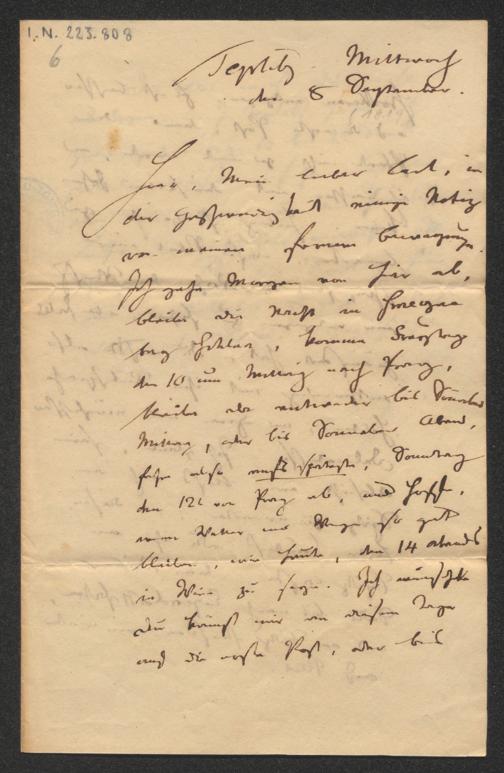 I.N. 223.808
6
Teplitz Mittwoch
den 8 September.
Hier, Mein lieber Carl, in
der Geschwindigkeit einige Notiz
von meinen fernern Bewegungen.
Ich gehe Morgen von hier ab,
bleibe die Nacht in
berg Schlan, komme Freytag
den 10 um Mittag nach Prag,
bleibe da entweder bis Sonnabend
Mittag, oder bis Sonnabend Abend,
fahre also aufs späteste, Sonntag
den 12t von Prag ab, und hoffe,
wenn Wetter und Wege so gut
bleiben, wie heute, den 14 Abends
in Wien zu seyn. Ich wünschte
Du kämst mir an diesem Tage
auf die erste Post, oder bis